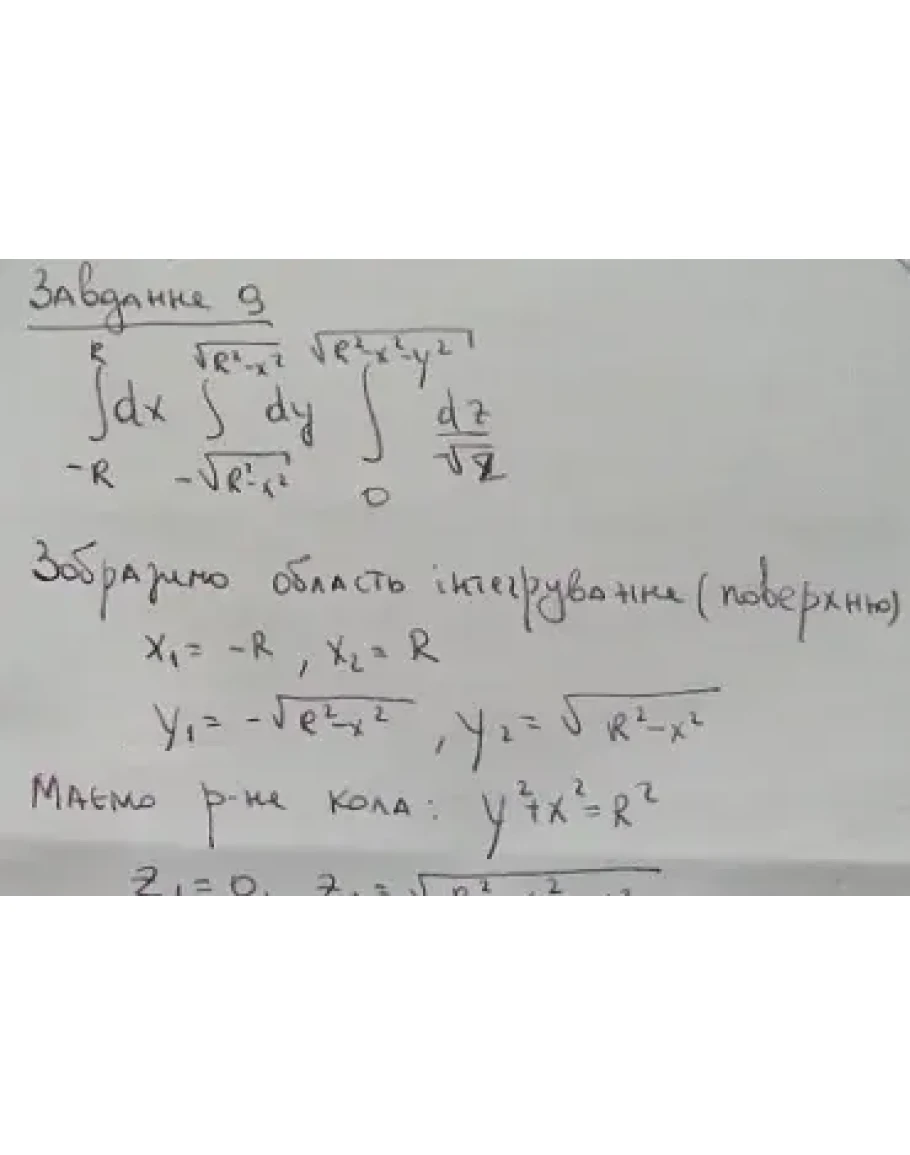 Завдання 9
∫_{-R}^{R} dx ∫_{-√(R²-x²)}^{√(R²-x²)} dy ∫_{0}^{√(R²-x²-y²)} dz/√z
Зобразимо область інтегрування (поверхню)
x₁ = -R, x₂ = R
y₁ = -√(R²-x²), y₂ = √(R²-x²)
Маємо р-ня кола: y²+x²=R²
z₁ = 0,